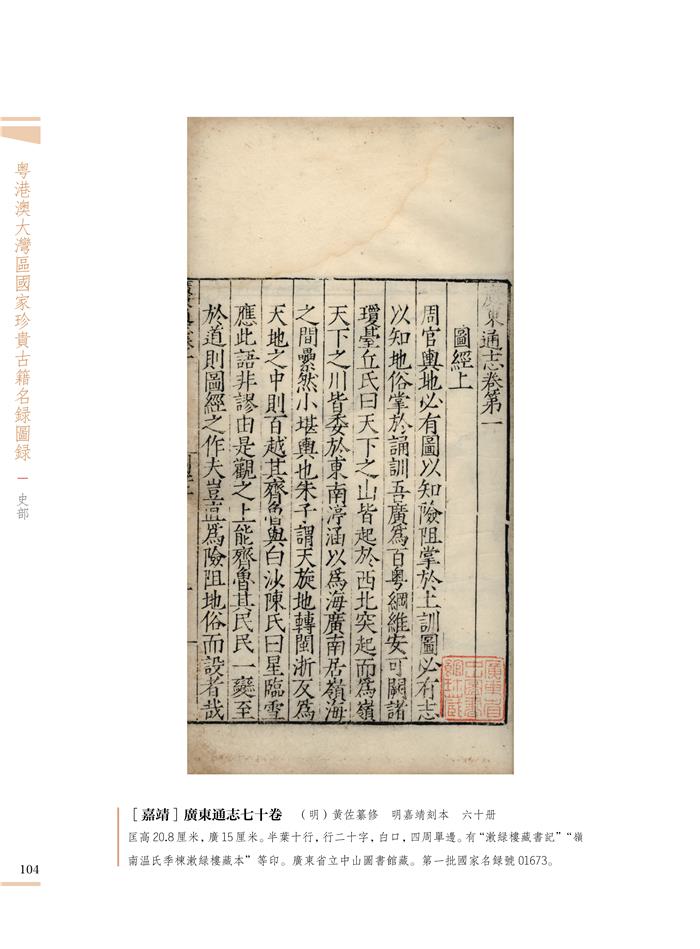 粤港澳大灣區國家珍貴古籍名録圖録
一
史部
廣東通志卷第一
圖經上
周官輿地必有圖以知險阻掌於土訓圖必有志
以知地俗掌於誦訓吾廣爲百粤綱維安可闕諸
瓊臺丘氏曰天下之山皆起於西北突起而爲嶺
天下之川皆委於東南渟涵以爲海廣南居嶺海
之間纍然小堪輿也朱子謂天旋地轉閩浙反爲
天地之中則百越其齊魯與白沙陳氏曰星臨雪
應此語非謬由是觀之上能齊魯其民民一變至
於道則圖經之作夫豈直爲險阻地俗而設者哉
廣東省
中山圖書
館珍藏
［嘉靖］廣東通志七十卷　（明）黄佐纂修　明嘉靖刻本　六十册
匡高20.8厘米，廣15厘米。半葉十行，行二十字，白口，四周單邊。有“漱緑樓藏書記”“嶺
南温氏季棟漱緑樓藏本”等印。廣東省立中山圖書館藏。第一批國家名録號01673。
104